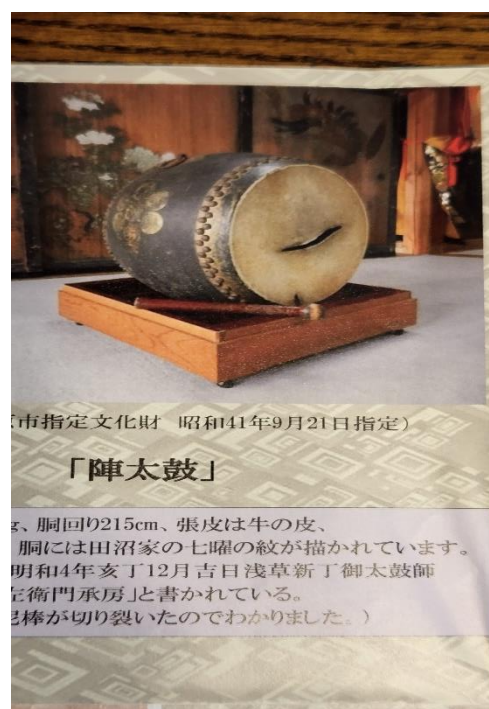 市指定文化財　昭和41年9月21日指定）
「陣太鼓」
g、胴回り215cm、張皮は牛の皮、
胴には田沼家の七曜の紋が描かれています。
明和4年亥丁12月吉日浅草新丁御太鼓師
左衛門承房」と書かれている。
棒が切り裂いたのでわかりました。）